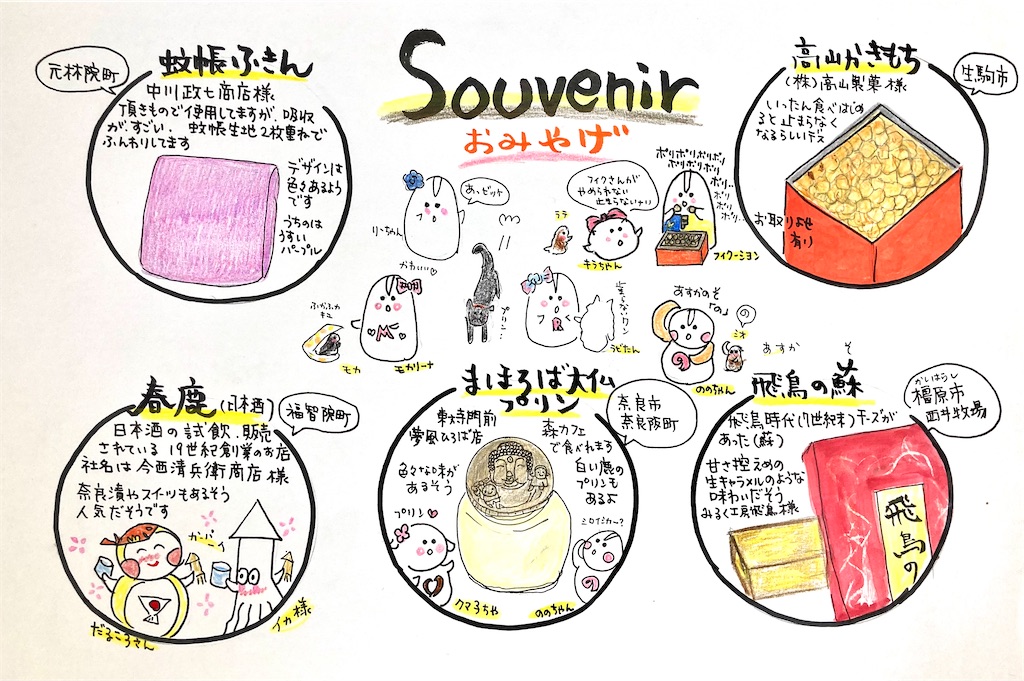 Souvenir
おみやげ
元林院町
蚊帳ふきん
中川政七商店様
頂きもので使用してますが、吸収
がすごい、蚊帳生地2枚重ねで
ふんわりしてます
デザインは
色々あるよう
です
うちのは
うすい
パープル
高山かきもち
(株)高山製菓様
生駒市
いったん食べはじめ
ると止まらなく
なるらしいデス
お取りよせ
有り
あ、ビッケ
りーちゃん
フィクさんが
やめられない
止まらないナリ
ララ
キラちゃん
ポリポリポリポリ
ポリポリポリ
ポリ…
ポリ
ポリ
ポリ…
フィクーション
かわいい♡
ふかふか
モカ
M
モカリーナ
プリン…
R
ラビたん
あすかのそ
「の」
の
ミオ
ののちゃん
春鹿(日本酒)
福智院町
日本酒の試飲、販売
されている 19世紀創業のお店
社名は 今西清兵衛商店様
奈良漬やスイーツもあるそう
人気だそうです
カンパーイ
だるころさん
イカ様
まほろば大仏
プリン
奈良市
奈良阪町
東大寺門前
夢風ひろば店
色々な味が
あるそう
森カフェ
で食べれます
白い鹿の
プリンも
あるよ
プリン♡
クマ子ちゃ
ののちゃん
あすか そ
飛鳥の蘇
かしはらし
橿原市
西井牧場
飛鳥時代(7世紀末)チーズが
あった(蘇)
甘さ控えめの
生キャラメルのような
味わいだそう
みるく工房飛鳥様
飛鳥の